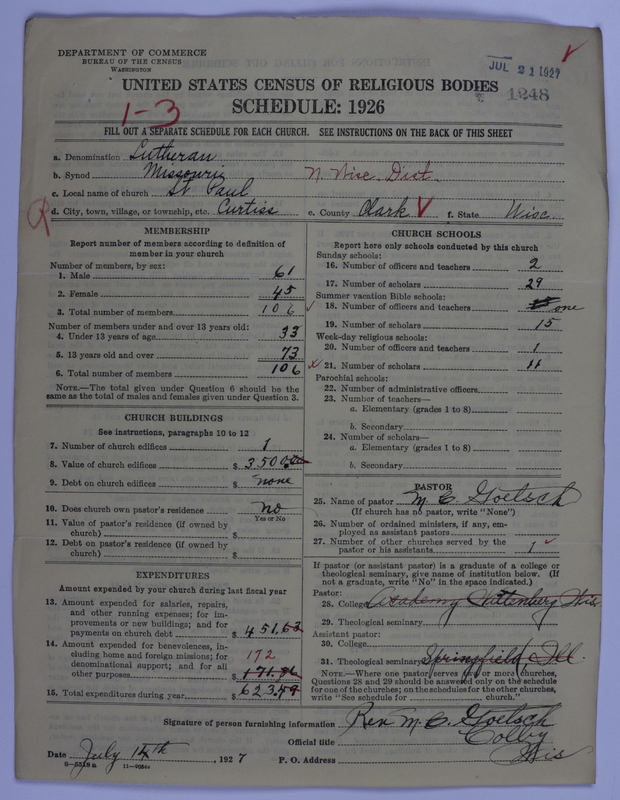 DEPARTMENT OF COMMERCE
BUREAU OF THE CENSUS
WASHINGTON
JUL 21 1927
1248
UNITED STATES CENSUS OF RELIGIOUS BODIES
SCHEDULE: 1926
1-3
FILL OUT A SEPARATE SCHEDULE FOR EACH CHURCH. SEE INSTRUCTIONS ON THE BACK OF THIS SHEET
a. Denomination Lutheran
b. Synod Missouri N. Wisc. Dist.
c. Local name of church St Paul
d. City, town, village, or township, etc. Curtiss e. County Clark f. State Wisc.
MEMBERSHIP
Report number of members according to definition of
member in your church
Number of members, by sex:
1. Male 61
2. Female 45
3. Total number of members 106
Number of members under and over 13 years old:
4. Under 13 years of age 33
5. 13 years old and over 73
6. Total number of members 106
NOTE.—The total given under Question 6 should be the
same as the total of males and females given under Question 3.
CHURCH BUILDINGS
See instructions, paragraphs 10 to 12
7. Number of church edifices 1
8. Value of church edifices $ 3500.00
9. Debt on church edifices $ none
10. Does church own pastor's residence no
Yes or No
11. Value of pastor's residence (if owned by
church) $
12. Debt on pastor's residence (if owned by
church) $
EXPENDITURES
Amount expended by your church during last fiscal year
13. Amount expended for salaries, repairs,
and other running expenses; for im-
provements or new buildings; and for
payments on church debt $ 451.63
14. Amount expended for benevolences, in-
cluding home and foreign missions; for
denominational support; and for all
172
other purposes $ 171.96
15. Total expenditures during year $ 623.59
CHURCH SCHOOLS
Report here only schools conducted by this church
Sunday schools:
16. Number of officers and teachers 2
17. Number of scholars 29
Summer vacation Bible schools:
18. Number of officers and teachers one
19. Number of scholars 15
Week-day religious schools:
20. Number of officers and teachers 1
21. Number of scholars 11
Parochial schools:
22. Number of administrative officers
23. Number of teachers—
a. Elementary (grades 1 to 8)
b. Secondary
24. Number of scholars—
a. Elementary (grades 1 to 8)
b. Secondary
PASTOR
25. Name of pastor M. C. Goetsch
(If church has no pastor, write "None")
26. Number of ordained ministers, if any, em-
ployed as assistant pastors
27. Number of other churches served by the
pastor or his assistants 1
If pastor (or assistant pastor) is a graduate of a college or
theological seminary, give name of institution below. (If
not a graduate, write "No" in the space indicated.)
Pastor:
28. College Academy Wittenberg Wis
29. Theological seminary
Assistant pastor:
30. College
31. Theological seminary Springfield, Ill.
NOTE.—Where one pastor serves two or more churches,
Questions 28 and 29 should be answered only on the schedule
for one of the churches; on the schedules for the other churches,
write "See schedule for church."
Signature of person furnishing information Rev M. C. Goetsch
Official title Colby
Date July 14th, 1927 P. O. Address Wis
8—5518a 11—9664